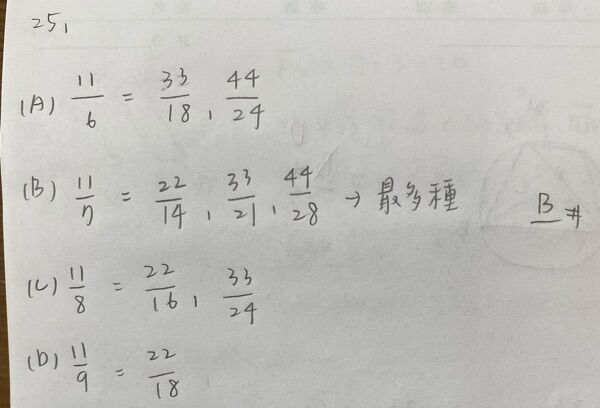 25,
(A) 11/6 = 33/18, 44/24
(B) 11/7 = 22/14, 33/21, 44/28 → 最多種 B #
(C) 11/8 = 22/16, 33/24
(D) 11/9 = 22/18